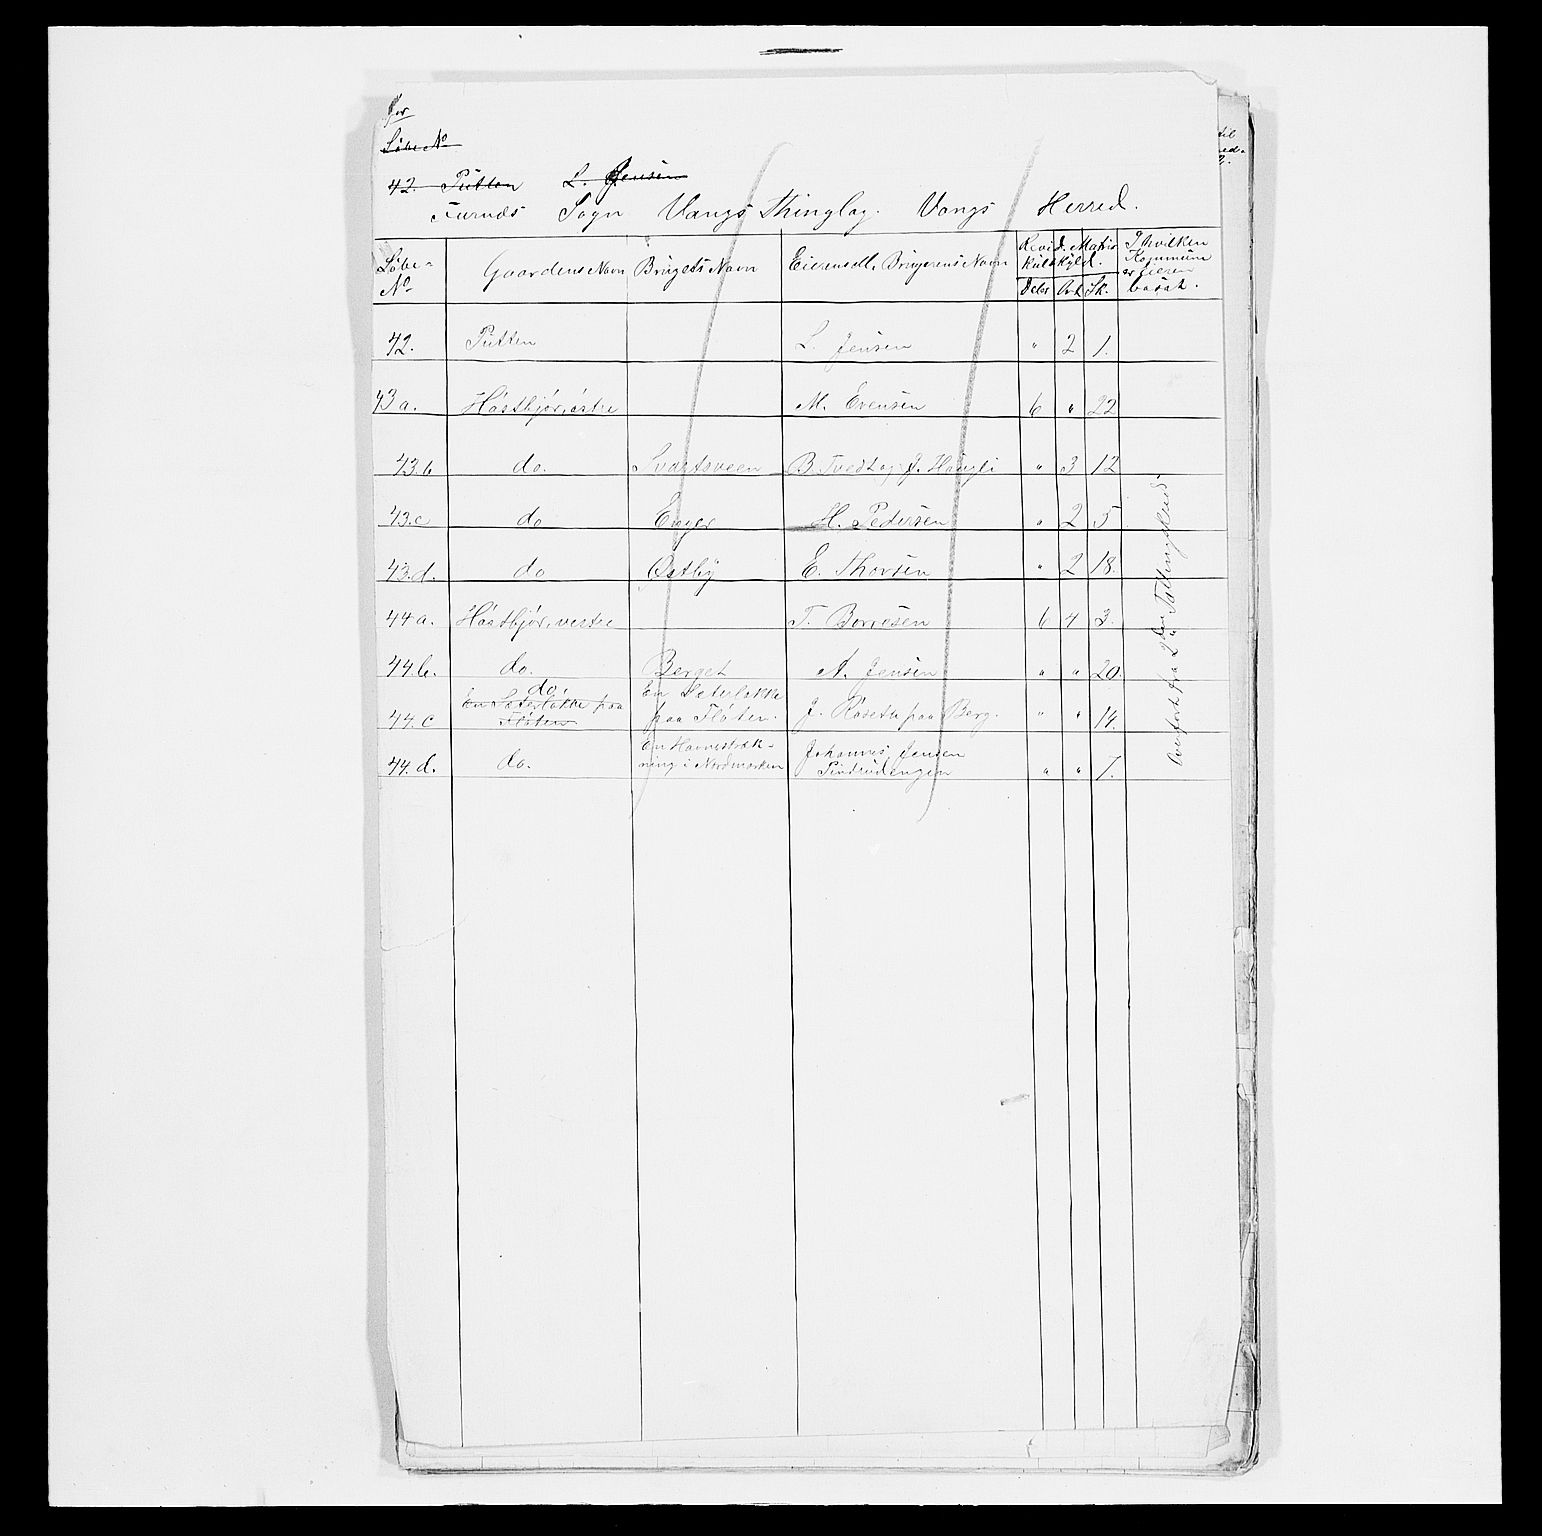 Løbe No
42. Pütten L. Jensen
Furnæs Sogn Vangs Thinglag. Vangs Herred.
Løbe-No Gaardens Navn Brugets Navn Eierens ell. Brugerens Navn Revid. Matrikulskyld. I hvilken Kommune er Eieren bosat.
Daler Ort Sk.
42. Pütten L. Jensen " 2 1.
43a. Høstbjør, østre M. Evensen 6 " 22
43.b do. Svartsveen B. Tvedt og J. Haugli " 3 12
43.c do Enger H. Pedersen " 2 5
43.d. do Østby E. Thorsen " 2 18.
44a. Høstbjør, vestre T. Borresen 6 4 3.
44.b. do. Berget A. Jensen " " 20.
44.c En Sæterløkke paa Fløten do. En Sæterløkke paa Fløten. J. Røset paa Berg. " " 14.
44.d. do. En Havnestrækning i Nordmarken Johannes Jensen Pindsüdengen " " 7.
Overført fra 2den
til